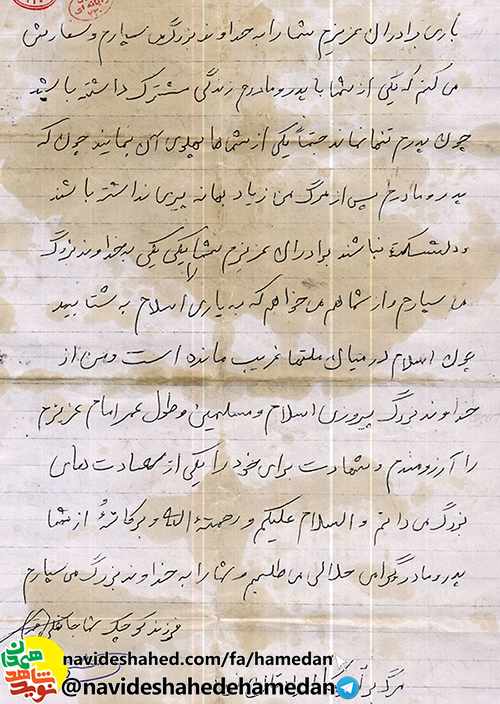 باری برادران عزیزم شما را به خداوند بزرگ می سپارم و سفارش
می کنم که یکی از شما با پدر و مادرم زندگی مشترک داشته باشید
چون پدرم تنها نماند حتماً یکی از شماها پهلوی آن بمانید چون که
پدر و مادرم پس از مرگ من زیاد بهانه پیری نداشته باشند
و دلشکسته نباشند برادران عزیزم شما را یکی یکی به خداوند بزرگ
می سپارم و از شما هم می خواهم که به یاری اسلام بشتابید
چون اسلام در میان ملتها غریب مانده است و من از
خداوند بزرگ پیروزی اسلام و مسلمین و طول عمر امام عزیزم
را آرزومندم و شهادت برای خود را یکی از سعادت های
بزرگ می دانم و السلام علیکم و رحمة الله و برکاته از شما
پدر و مادر گرامی حلالی می طلبم و شما را به خداوند بزرگ می سپارم
فرزند کوچک شما
navideshahed.com/fa/hamedan
@navideshahedehamedan
مرگ بر
نوید شاهد همدان